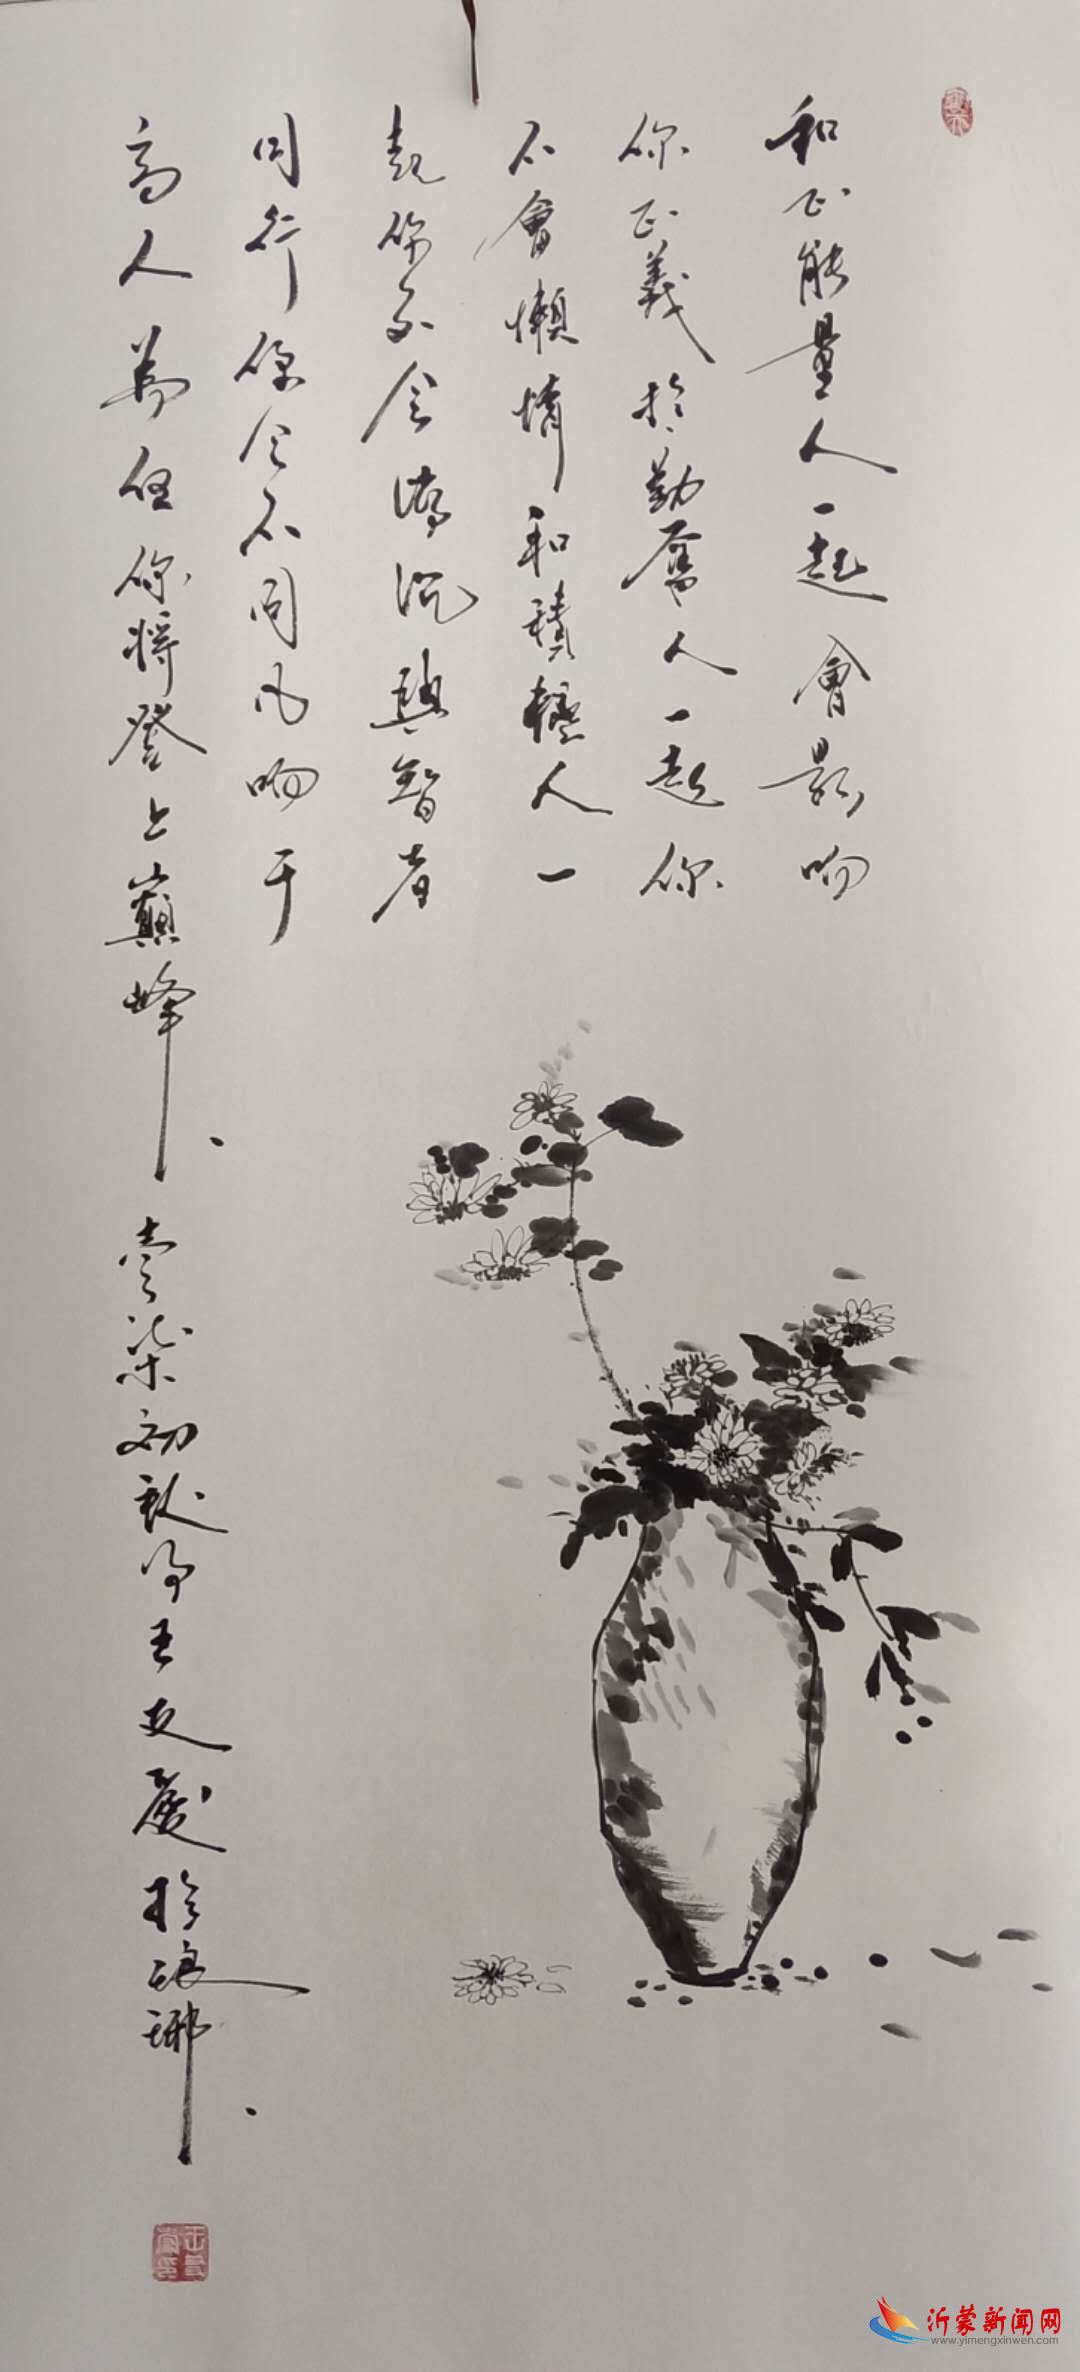 和正能量人一起會影响
你正義於勤奮人一起你
不會懶惰和積極人一
起你不会消沉與智者
同行你会不同凡响于
高人為伍你將登上巔峰
壹柒初秋 王 於琅琊
沂蒙新闻网
www.yimengxinwen.com